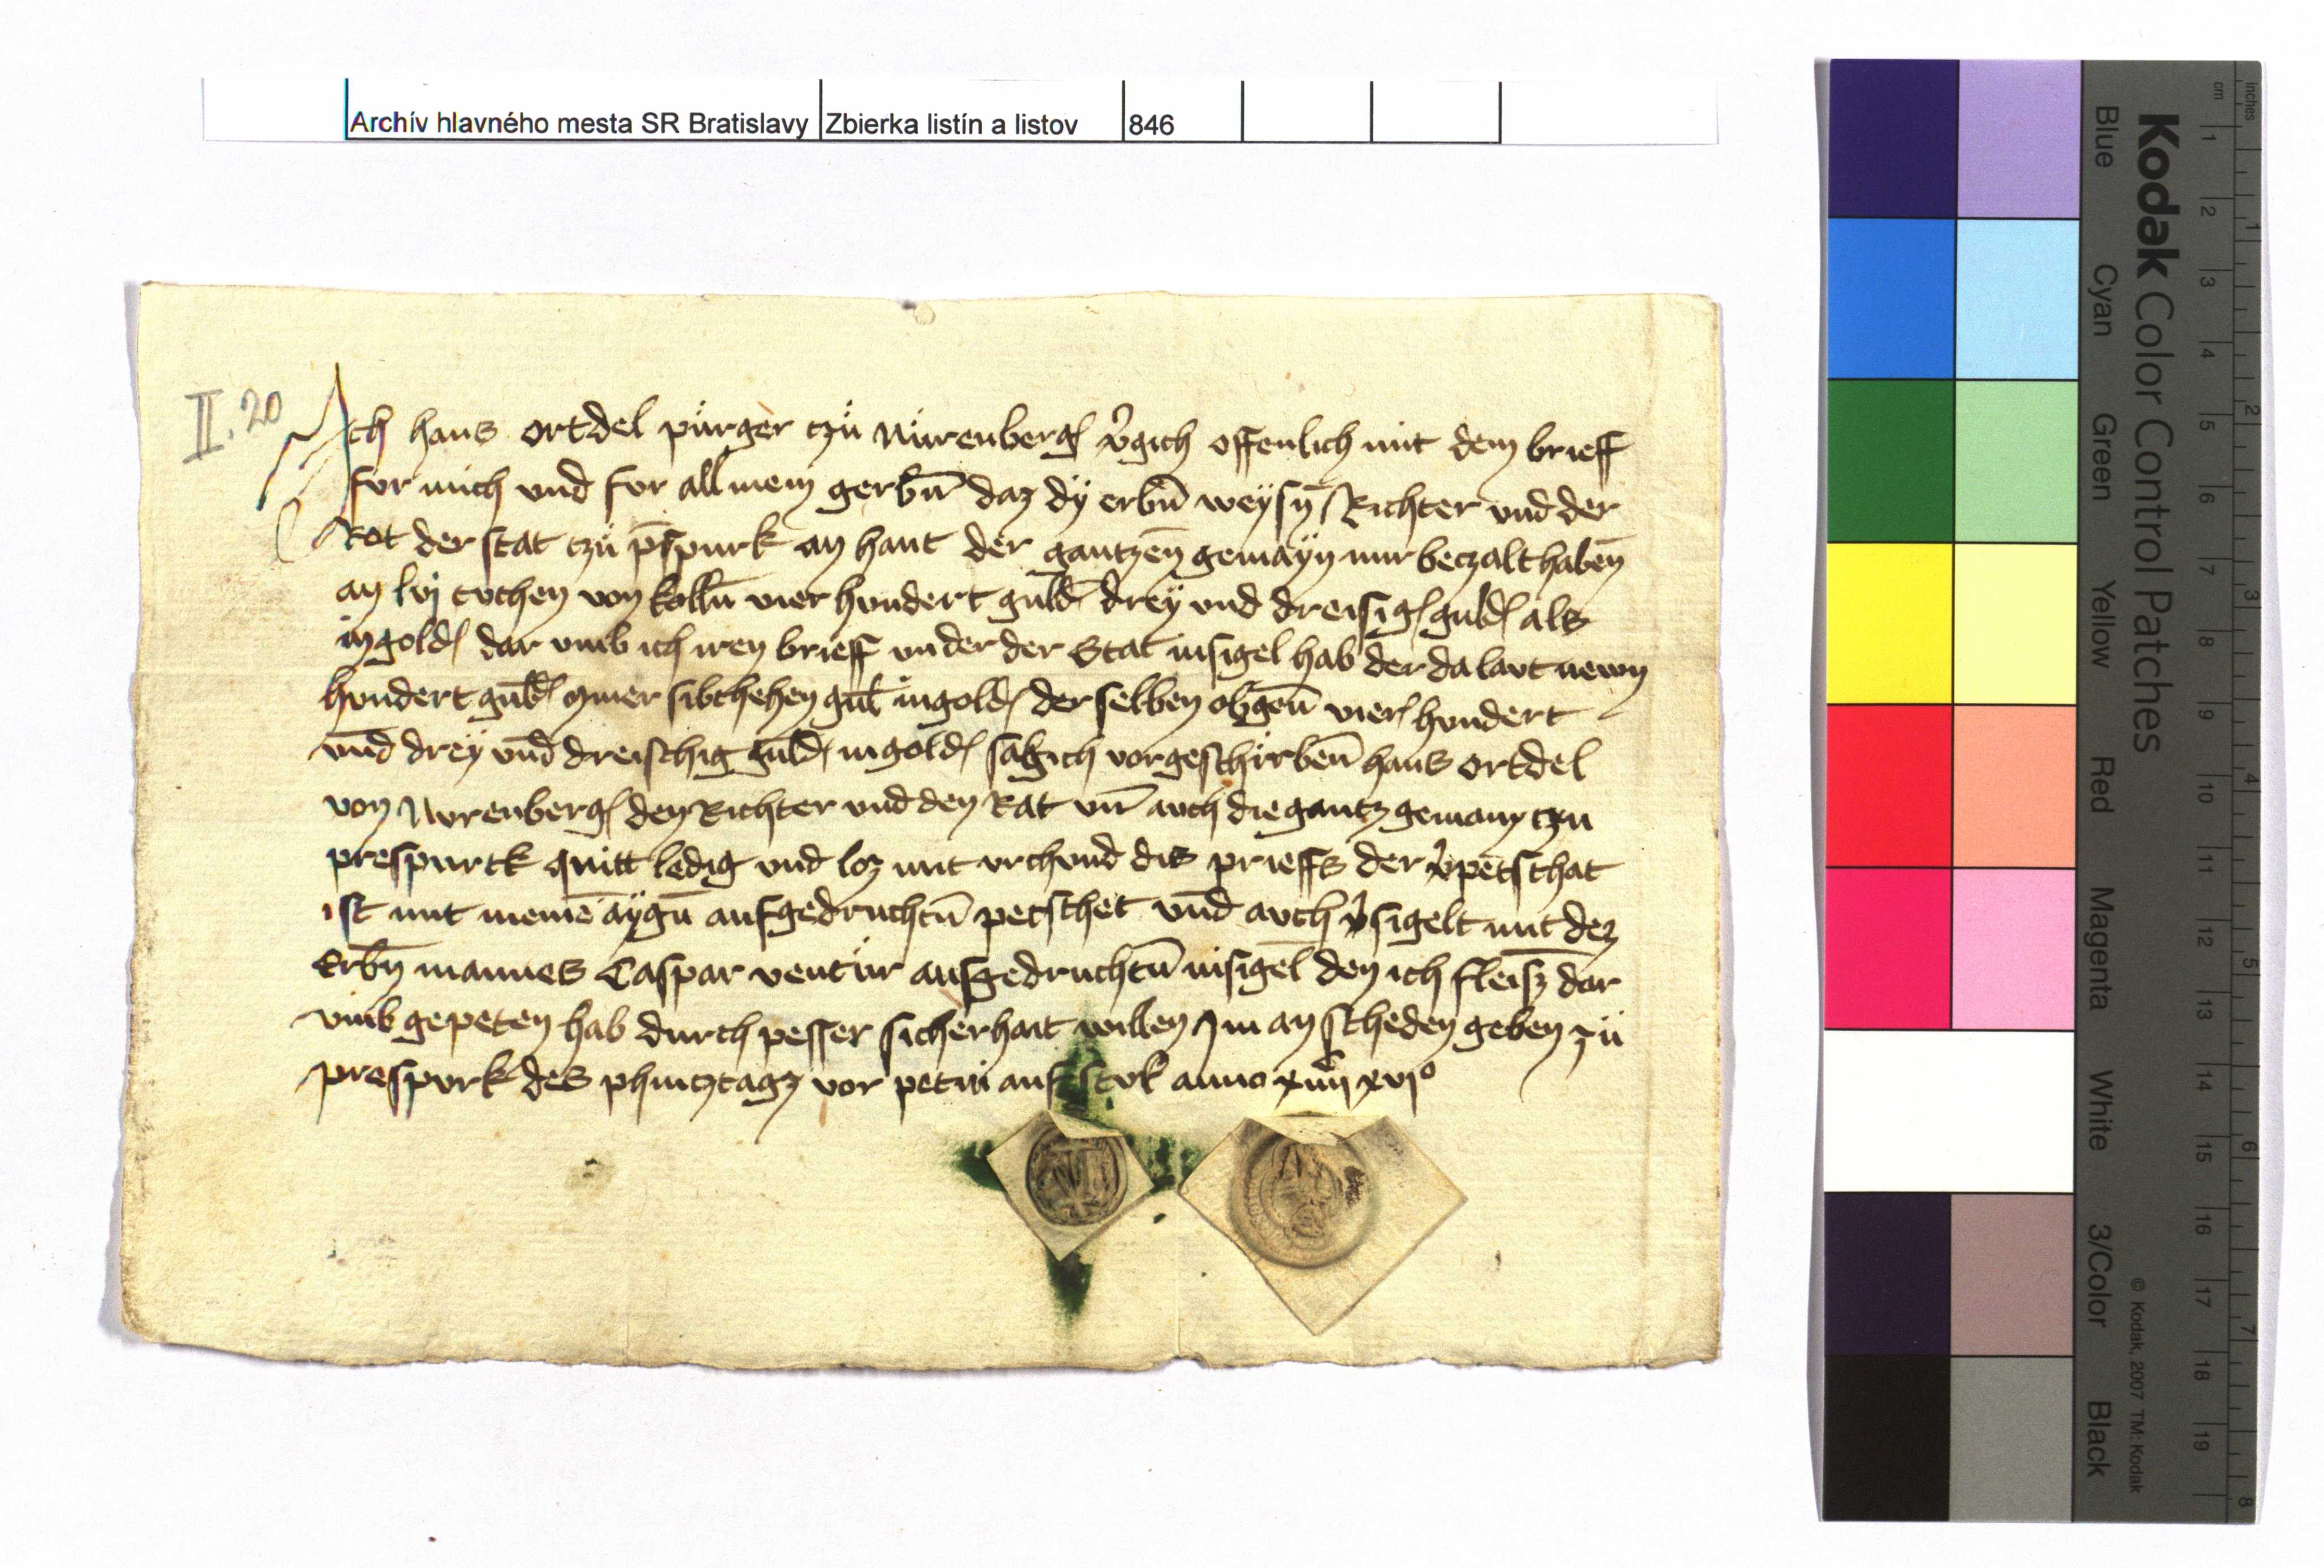 Archív hlavného mesta SR Bratislavy Zbierka listín a listov 846
II. 20
Ich hans ortdel pürger czü Nürenberg v̂gich offenlich mit dem brieff
for mich vnd for all mein gerbn̄ daz dÿ erbn̄ weÿsn̄ Richter vnd der
Rot der stat czü p̄spurk an hant der gantzen̄ gemaÿn mir beczalt haben̄
an lvj tvchen von kolln̄ vier hvndert guld̄ dreÿ vnd dreisig guld als
in gold dar vmb ich iren brieff vnder der Stat insigel hab der da lavt newn
hvndert guld̄ mner sibchehen guld̄ in gold der selben obgen̄ vier hvndert
vnd̄ dreÿ vnd̄ dreischig guld̄ in gold sag ich vorgeschirben̄ hans ortdel
von Nvrenberg den Richter vnd den Rat vn̄ avch die gantz gemany czu
prespurck quitt ledig vnd loz mit vrchvnd dis prieffs der v̂petschat
ist mit meinē aÿgn̄ aufgedruchtn̄ petschet vnd̄ avch v̂sigelt mit dez
Erbn̄ mannes Caspar ventür aufgedruchtn̄ insigel den ich fleisz dar
vmb gepeten hab durch pesser sicherhait willen Im an scheden geben zü
prespvrk des phincztagz vor petri auf stvl anno xiiijc xvjo
Kodak Color Control Patches
Blue Cyan Green Yellow Red Magenta White 3/Color Black
© Kodak, 2007 TM: Kodak
inches 1 2 3 4 5 6 7 8
cm 1 2 3 4 5 6 7 8 9 10 11 12 13 14 15 16 17 18 19